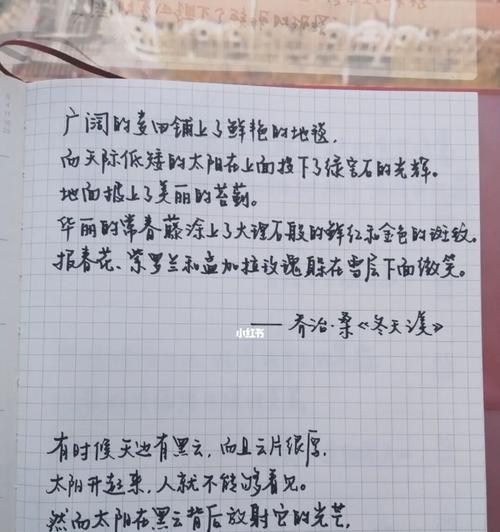 广阔的麦田铺上了鲜艳的地毯,
而天际低矮的太阳在上面投下了绿宝石的光辉。
地面披上了美丽的苔藓。
华丽的常春藤涂上了大理石般的鲜红和金色的斑纹。
报春花、紫罗兰和孟加拉玫瑰躲在雪层下面微笑。
小红书
——乔治·桑《冬天美》
有时候天边有黑云,而且云片很厚,
太阳升起来,人就不能够看见。
然而太阳在黑云背后放射它的光芒,